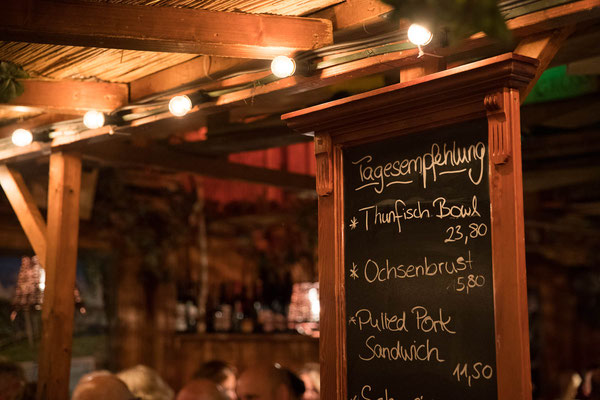 Tagesempfehlung
* Thunfisch Bowl
23,80
* Ochsenbrust
5,80
* Pulled Pork
Sandwich
11,50